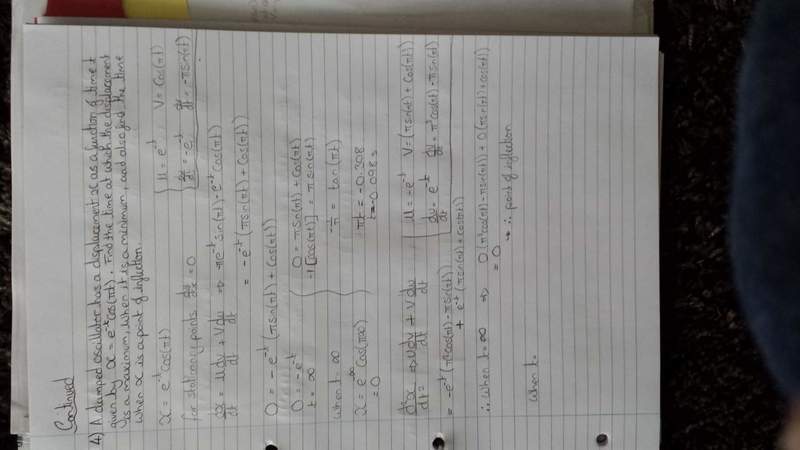 Continued
4) A damped oscillator has a displacement x as a function of time t
given by x = e^-t cos(πt). Find the time at which the displacement
is a maximum, when it is a minimum, and also find the time
when x is a point of inflection.
x = e^-t cos(πt)
u = e^-t V = Cos(πt)
for stationary points, dx = 0
du/dt = -e^-t dv/dt = -π sin(πt)
dx/dt = u dv/dt + v du/dt ⇒ -πe^-t sin(πt) - e^-t cos(πt)
= -e^-t (π sin(πt) + cos(πt))
0 = -e^-t (π sin(πt) + cos(πt))
0 = -e^-t
t = ∞
0 = π sin(πt) + cos(πt)
-1[cos(πt)] = π sin(πt)
when t = ∞
-1/π = tan(πt)
x = e^-∞ cos(π∞)
= 0
πt = -0.308
t = -0.098 s
d²x/dt² = ⇒ u dv/dt + v du/dt
u = -e^-t V = (π sin(πt) + cos(πt))
du/dt = e^-t dv/dt = π² cos(πt) - π sin(πt)
= -e^-t (π² cos(πt) - π sin(πt))
+ e^-t (π sin(πt) + cos(πt))
∴ when t = ∞ ⇒ 0(π² cos(πt) - π sin(πt)) + 0(π sin(πt) + cos(πt))
= 0
→ ∴ point of inflection
When t=